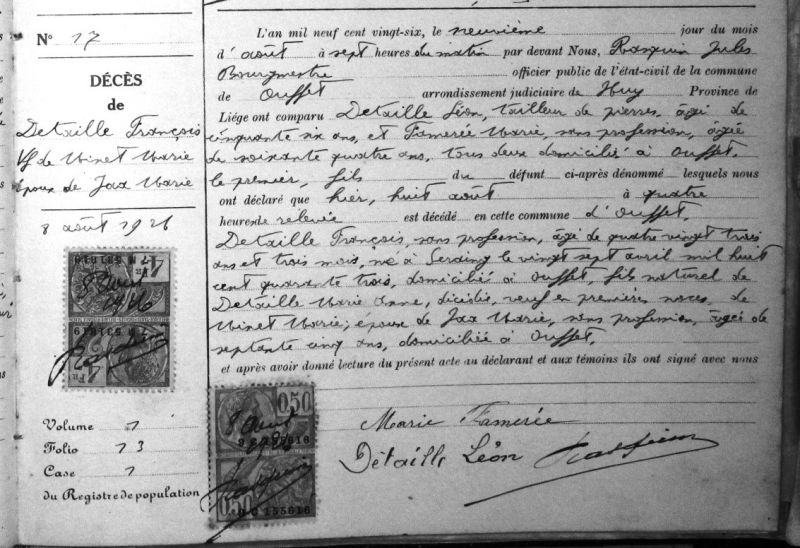 N° 17
DÉCÈS
de
Detaille François
Vf de Minet Marie
époux de Jax Marie
8 août 1926
L'an mil neuf cent vingt-six, le neuvième jour du mois
d'août à sept heures du matin par devant Nous, Rasquin Jules
Bourgmestre officier public de l'état-civil de la commune
de Ouffet arrondissement judiciaire de Huy Province de
Liége ont comparu Detaille Léon, tailleur de pierres, âgé de
cinquante six ans, et Famerée Marie, sans profession, âgée
de soixante quatre ans, tous deux domiciliés à Ouffet.
le premier, fils du défunt ci-après dénommé lesquels nous
ont déclaré que hier, huit août à quatre
heures de relevée est décédé en cette commune d'Ouffet,
Detaille François, sans profession, âgé de quatre vingt trois
ans et trois mois, né à Seraing le vingt sept avril mil huit
cent quarante trois, domicilié à Ouffet, fils naturel de
Detaille Marie Anne, décédée, veuf en premières noces, de
Minet Marie; époux de Jax Marie, sans profession, âgée de
septante cinq ans, domiciliée à Ouffet.
et après avoir donné lecture du présent acte au déclarant et aux témoins ils ont signé avec nous
Marie Famerée
Détaille Léon Rasquin
Volume 1
Folio 13
Case 1
du Registre de population
0,50
8 Août
155616
0,50
155616